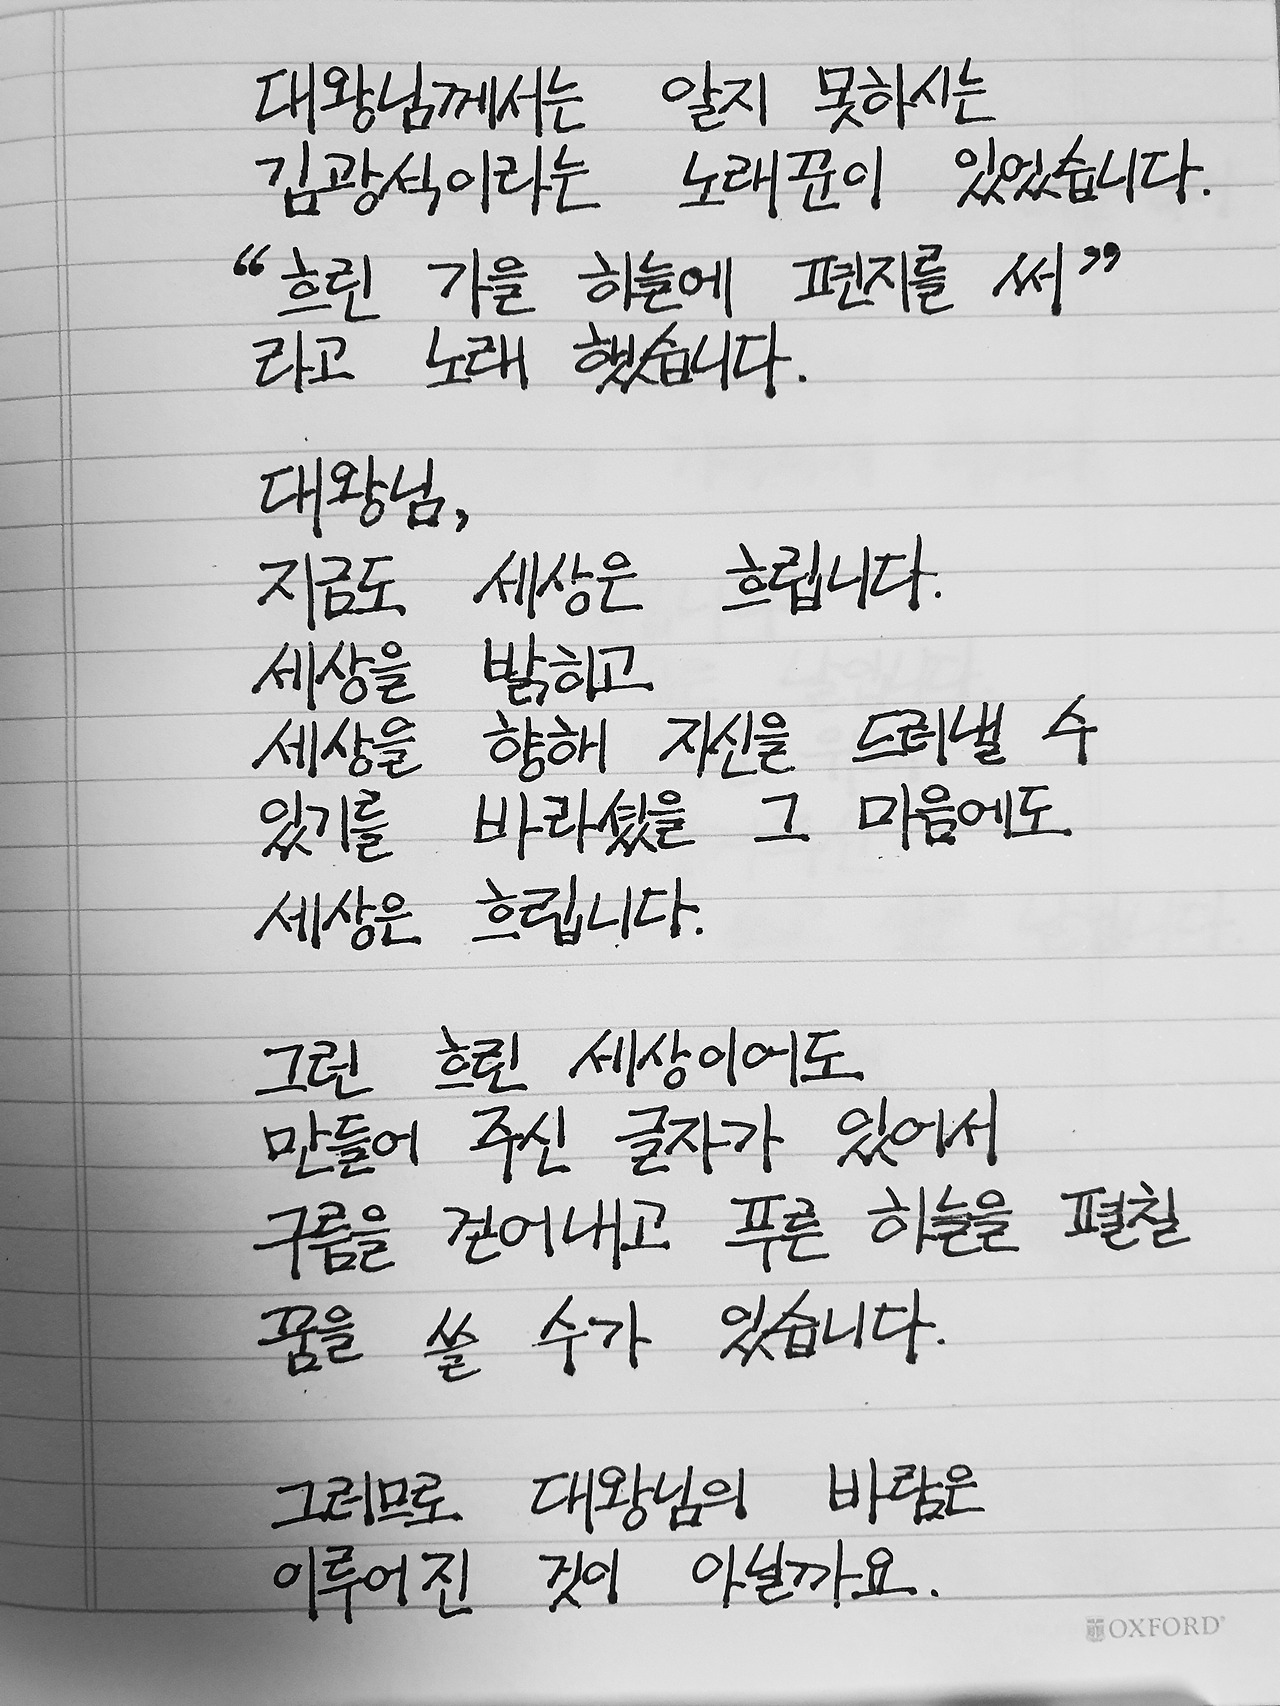 대왕님께서는 알지 못하시는
김광석이라는 노래꾼이 있었습니다.
“흐린 가을 하늘에 편지를 써”
라고 노래 했습니다.
대왕님,
지금도 세상은 흐립니다.
세상을 밝히고
세상을 향해 자신을 드러낼 수
있기를 바라셨을 그 마음에도
세상은 흐립니다.
그런 흐린 세상이어도
만들어 주신 글자가 있어서
구름을 걷어내고 푸른 하늘을 펼칠
꿈을 쓸 수가 있습니다.
그러므로 대왕님의 바람은
이루어진 것이 아닐까요.
OXFORD